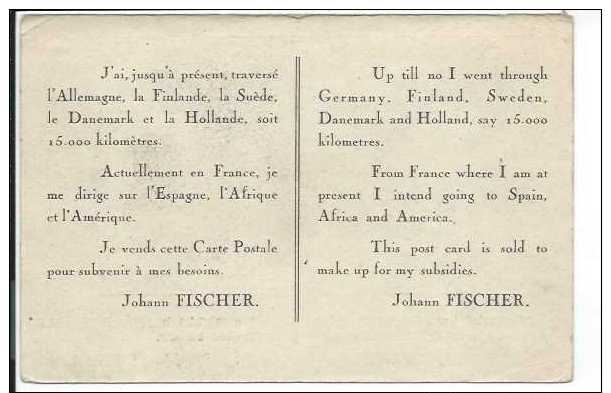 J'ai, jusqu'à présent, traversé
l'Allemagne, la Finlande, la Suède,
le Danemark et la Hollande, soit
15.000 kilomètres.
Actuellement en France, je
me dirige sur l'Espagne, l'Afrique
et l'Amérique.
Je vends cette Carte Postale
pour subvenir à mes besoins.
Johann FISCHER.
Up till no I went through
Germany, Finland, Sweden,
Danemark and Holland, say 15.000
kilometres.
From France where I am at
present I intend going to Spain,
Africa and America.
This post card is sold to
make up for my subsidies.
Johann FISCHER.